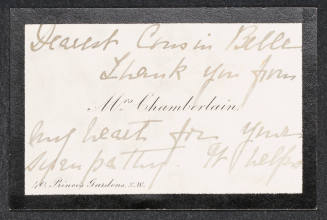 Dearest Cousin Belle
Thank you from
Mrs Chamberlain
my heart for your
sympathy. It helps
40, Princes Gardens, S.W.